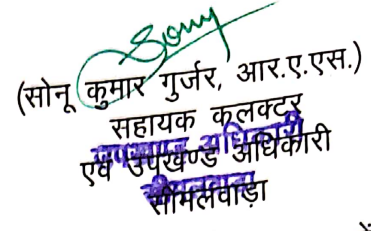 Sony
(सोनू कुमार गुर्जर, आर.ए.एस.)
सहायक कलक्टर
उपखण्ड अधिकारी
एवं उपखण्ड अधिकारी
सीमलवाड़ा
सीमलवाड़ा